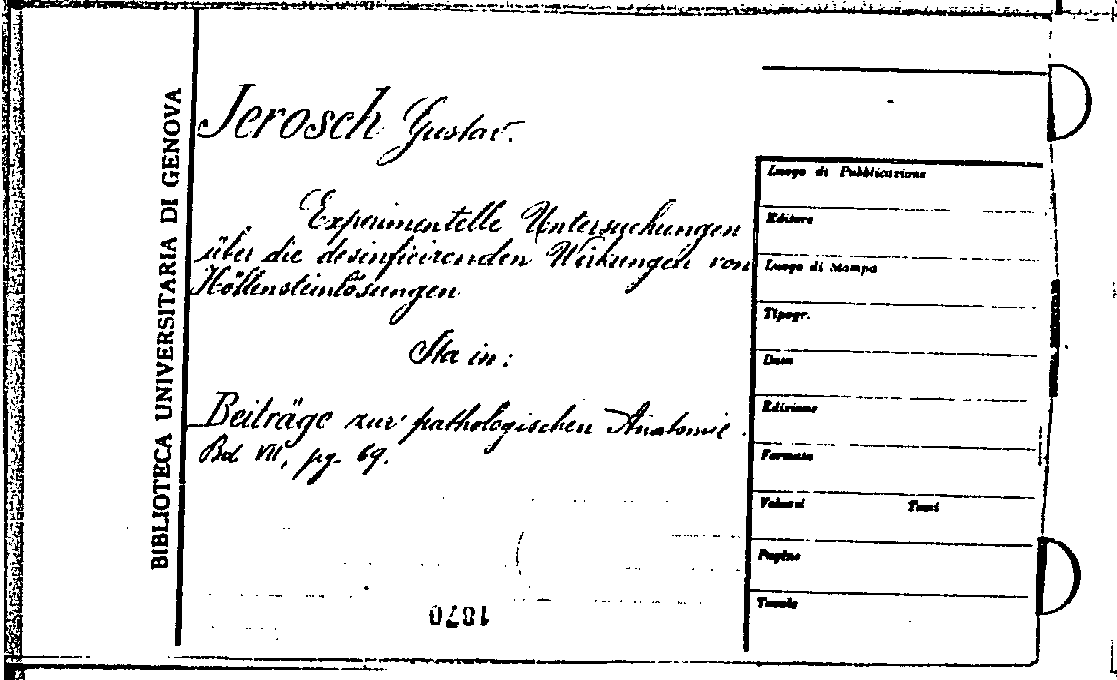 BIBLIOTECA UNIVERSITARIA DI GENOVA
Jerosch Gustav.
Experimentelle Untersuchungen
über die desinficirenden Wirkungen von
Höllensteinlösungen
Sta in:
Beiträge zur pathologischen Anatomie.
Bd. VII, pg. 69.
1870
Luogo di Pubblicazione
Editore
Luogo di Stampa
Tipogr.
Data
Edizione
Formato
Volumi Tomi
Pagine
Tavole